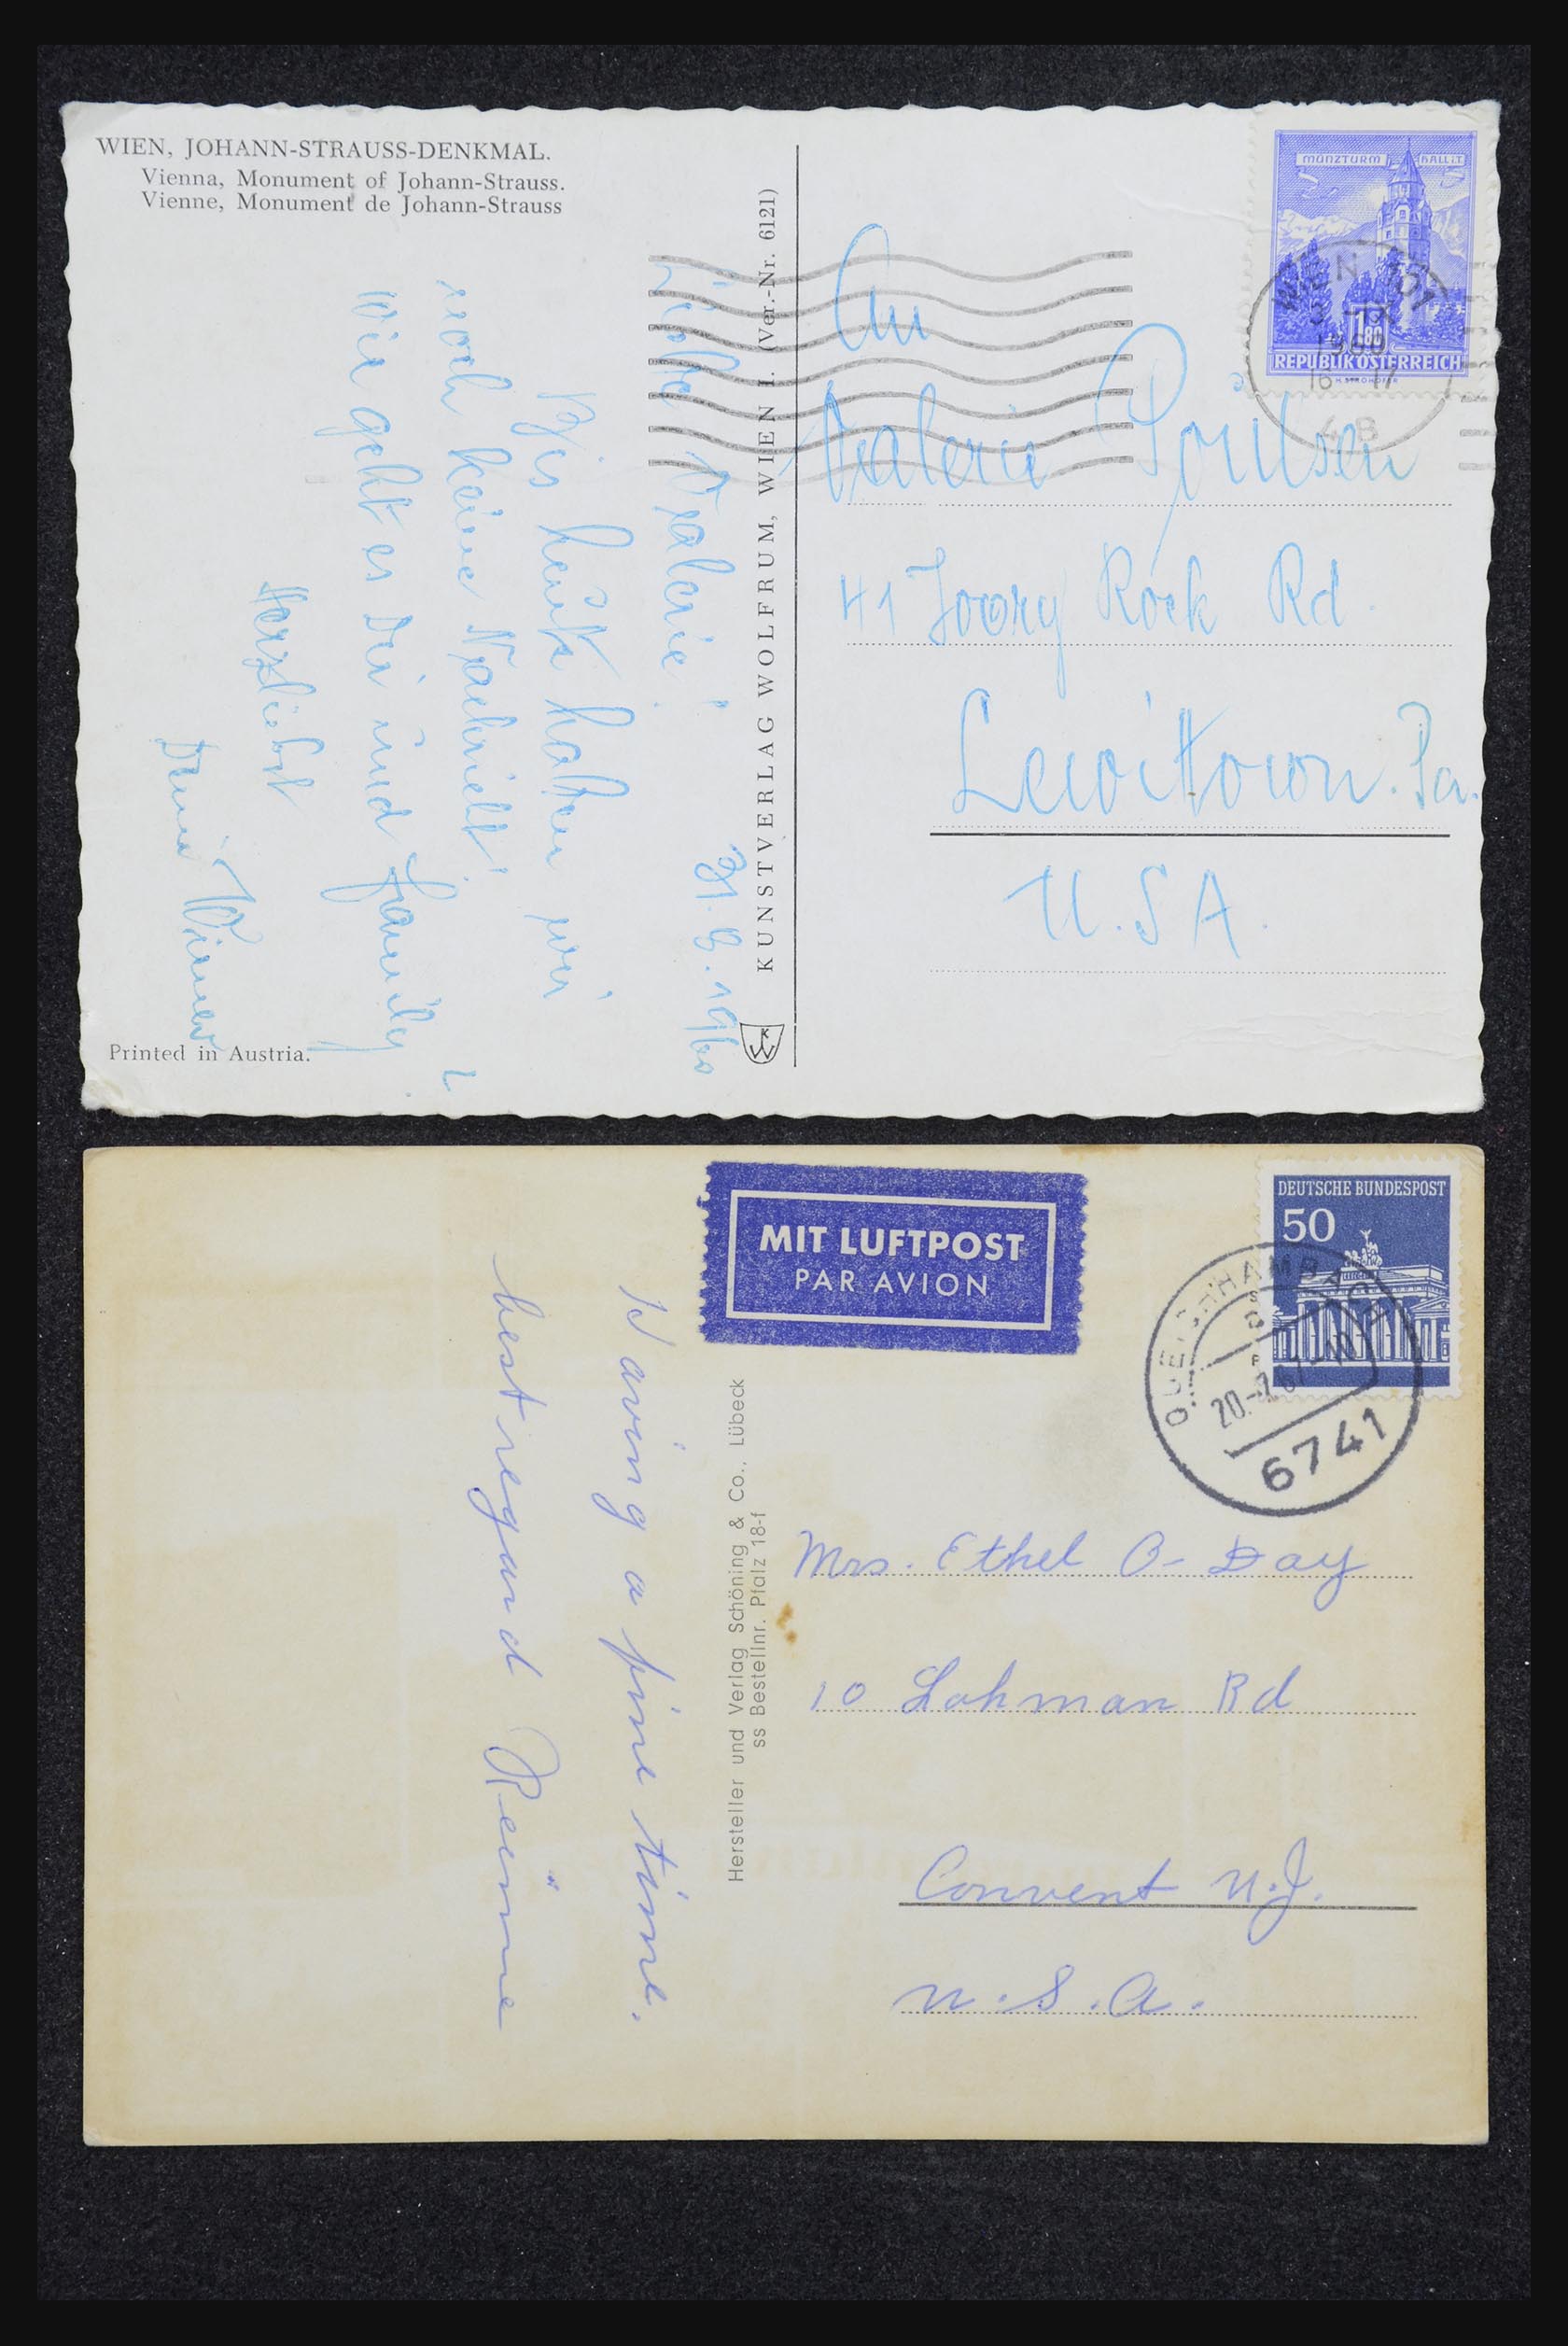 WIEN, JOHANN-STRAUSS-DENKMAL.
Vienna, Monument of Johann-Strauss.
Vienne, Monument de Johann-Strauss
MÜNZTURM HALL i.T.
1.80
REPUBLIK ÖSTERREICH
WIEN 101
1960
4B
31.8.1960
Liebe Valerie!
Bis heute haben wir
noch keine Nachricht!
Wie geht es Dir und Family?
Herzliebst
Printed in Austria.
KUNSTVERLAG WOLFRUM, WIEN I. (Ver.-Nr. 6121)
KW
An
Valerie Poulsen
41 Ivory Rock Rd.
Levittown. Pa.
U.S.A.
MIT LUFTPOST
PAR AVION
DEUTSCHE BUNDESPOST
50
6741
Having a fine time.
best regard
Hersteller und Verlag Schöning & Co., Lübeck
ss Bestellnr. Pfalz 18-f
Mrs. Ethel O-Day
10 Lohman Rd
Convent N.J.
U.S.A.